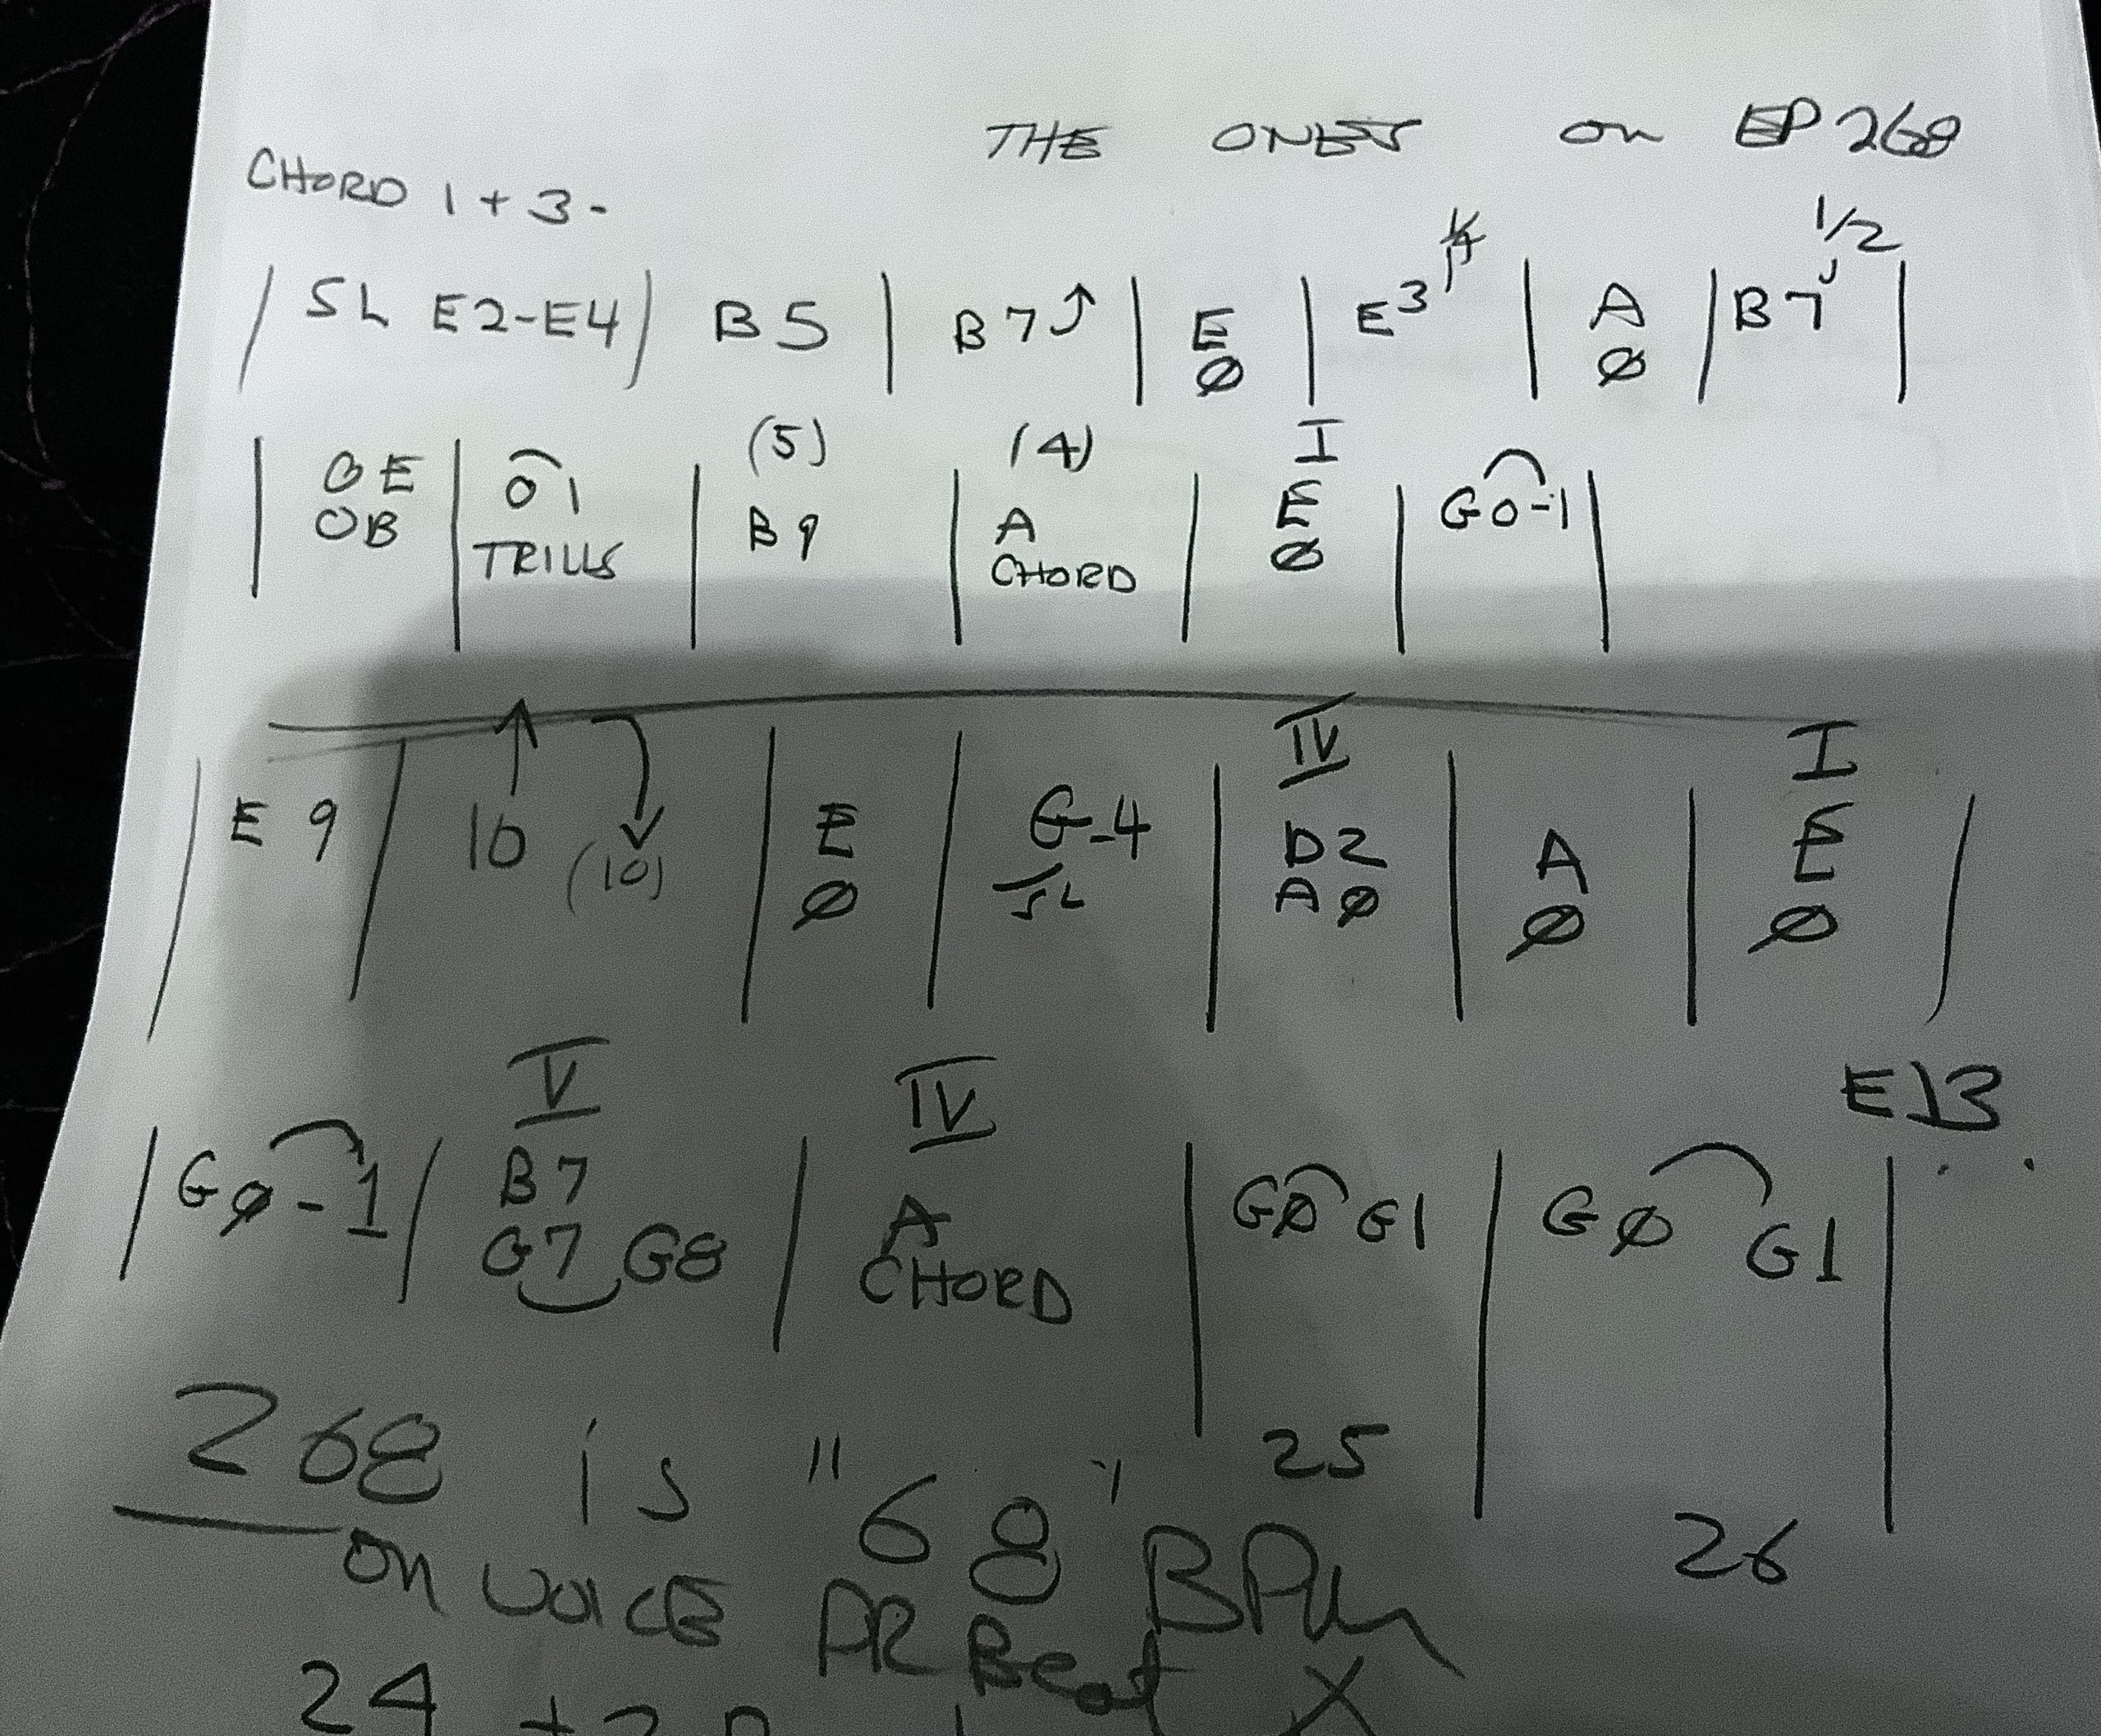 THE ONES on EP 268
CHORD 1 + 3 -
1/4 1/2
| SL E2-E4 | B5 | B7⤴ | E | E3 | A | B7 |
Ø Ø
(5) (4) I
| OE | 0 1 | B9 | A | E | G0-1 |
OB TRILLS CHORD Ø
IV I
| E 9 | 10 ↑ (10) | E | G-4 | D2 | A | E |
Ø SL AØ Ø Ø
V IV E13
| GØ-1 | B7 | A | GØ G1 | GØ G1 |
G7 G8 CHORD
25 26
268 is "68" BPM
on VOICE DR Beat X
24